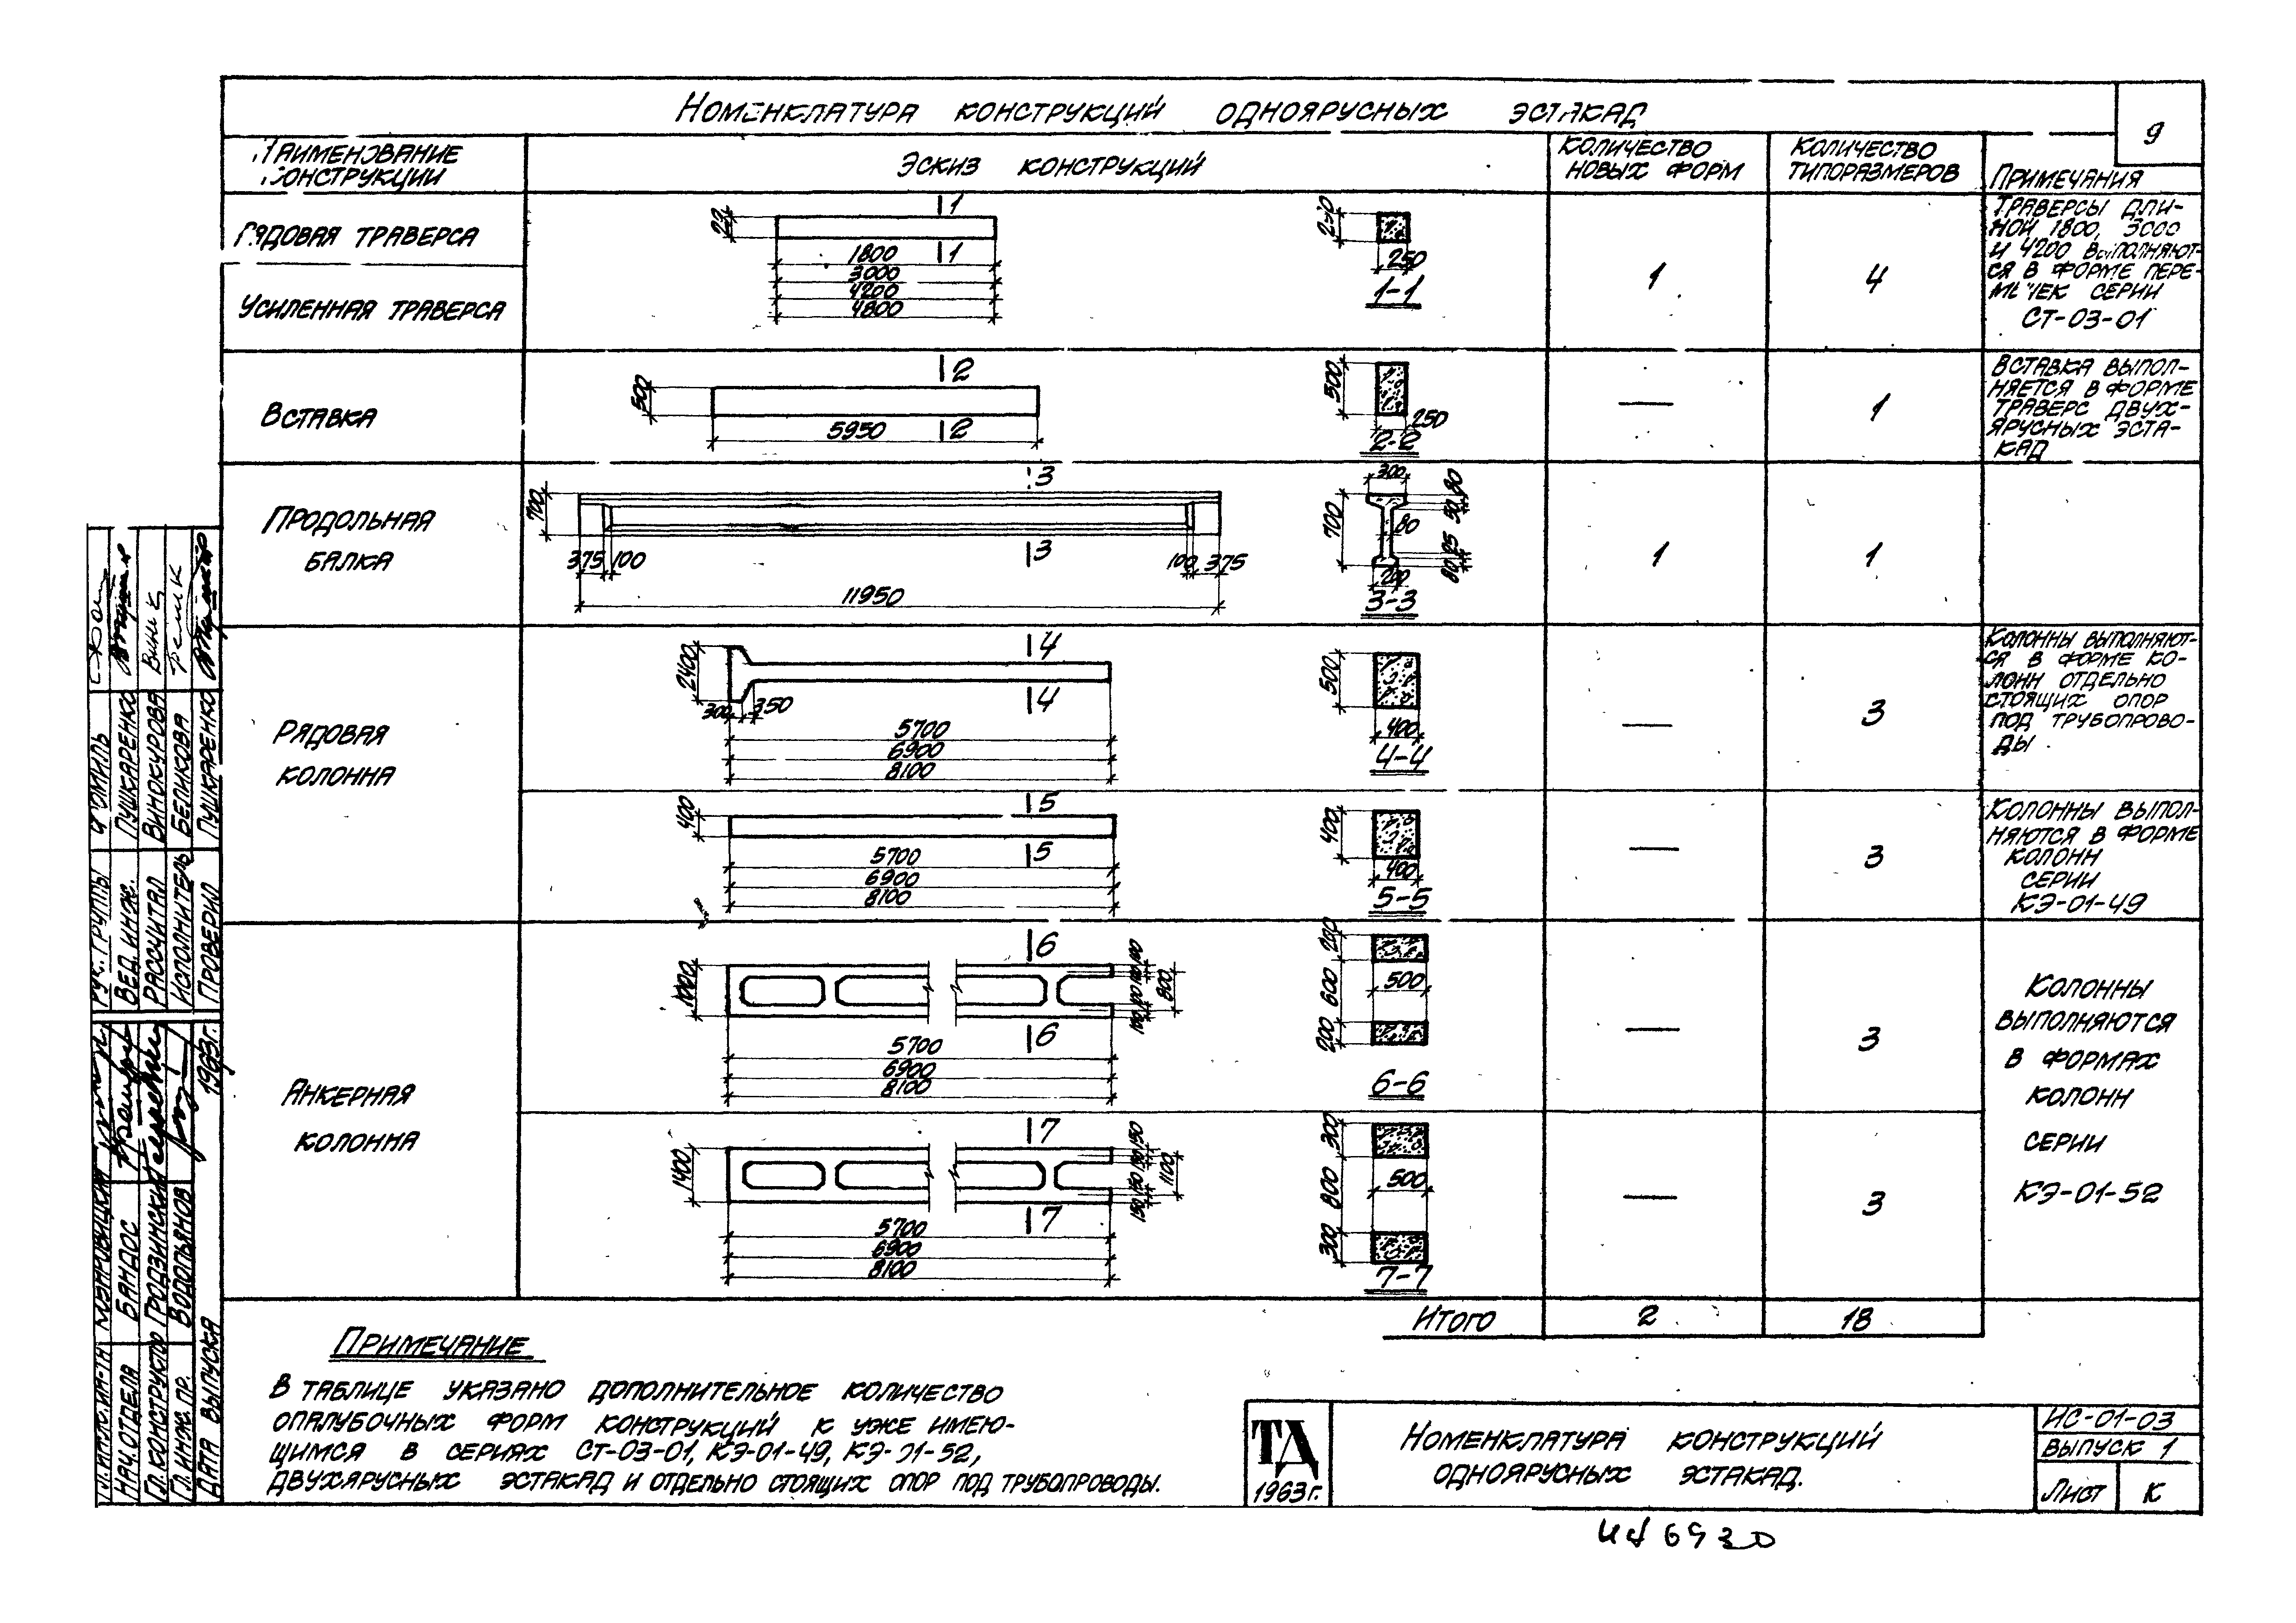 НОМЕНКЛАТУРА КОНСТРУКЦИЙ ОДНОЯРУСНЫХ ЭСТАКАД
9
НАИМЕНОВАНИЕ
КОНСТРУКЦИИ
ЭСКИЗ КОНСТРУКЦИЙ
КОЛИЧЕСТВО
НОВЫХ ФОРМ
КОЛИЧЕСТВО
ТИПОРАЗМЕРОВ
ПРИМЕЧАНИЯ
РЯДОВАЯ ТРАВЕРСА
УСИЛЕННАЯ ТРАВЕРСА
1
1
1800
3000
4200
4800
250
1-1
1
4
ТРАВЕРСЫ ДЛИ-
НОЙ 1800, 3000
И 4200 ВЫПОЛНЯЮТ-
СЯ В ФОРМЕ ПЕРЕ-
МЫЧЕК СЕРИИ
СТ-03-01
ВСТАВКА
500
2
2
5950
500
250
2-2
—
1
ВСТАВКА ВЫПОЛ-
НЯЕТСЯ В ФОРМЕ
ТРАВЕРС ДВУХ-
ЯРУСНЫХ ЭСТА-
КАД
ПРОДОЛЬНАЯ
БАЛКА
700
3
3
375 100
100 375
11950
300
700
80
50 80
80 25
200
3-3
1
1
РЯДОВАЯ
КОЛОННА
2400
4
4
300 350
5700
6900
8100
500
400
4-4
—
3
КОЛОННЫ ВЫПОЛНЯЮТ-
СЯ В ФОРМЕ КО-
ЛОНН ОТДЕЛЬНО
СТОЯЩИХ ОПОР
ПОД ТРУБОПРОВО-
ДЫ.
400
5
5
5700
6900
8100
400
400
5-5
—
3
КОЛОННЫ ВЫПОЛ-
НЯЮТСЯ В ФОРМЕ
КОЛОНН
СЕРИИ
КЭ-01-49
АНКЕРНАЯ
КОЛОННА
1000
6
6
800
5700
6900
8100
200
600
200
500
6-6
—
3
КОЛОННЫ
ВЫПОЛНЯЮТСЯ
В ФОРМАХ
КОЛОНН
СЕРИИ
КЭ-01-52
1400
7
7
150
150
1100
5700
6900
8100
300
800
300
500
7-7
—
3
ИТОГО
2
18
ПРИМЕЧАНИЕ
В ТАБЛИЦЕ УКАЗАНО ДОПОЛНИТЕЛЬНОЕ КОЛИЧЕСТВО
ОПАЛУБОЧНЫХ ФОРМ КОНСТРУКЦИЙ К УЖЕ ИМЕЮ-
ЩИМСЯ В СЕРИЯХ СТ-03-01, КЭ-01-49, КЭ-01-52,
ДВУХЯРУСНЫХ ЭСТАКАД И ОТДЕЛЬНО СТОЯЩИХ ОПОР ПОД ТРУБОПРОВОДЫ.
ТД
1963г.
НОМЕНКЛАТУРА КОНСТРУКЦИЙ
ОДНОЯРУСНЫХ ЭСТАКАД.
ИС-01-03
ВЫПУСК 1
ЛИСТ
К
6930
РУК. ГРУППЫ
ВЕД. ИНЖ. ПУШКАРЕНКО
РАССЧИТАЛ ВИНОКУРОВА
ИСПОЛНИТЕЛЬ БЕЛИКОВА
ПРОВЕРИЛ ПУШКАРЕНКО
НАЧ. ОТДЕЛА БАНДОС
ГЛ. КОНСТРУКТОР ГРОДЗИНСКИЙ
ГЛ. ИНЖ. ПР. ВОДОПЬЯНОВ
ДАТА ВЫПУСКА 1963г.